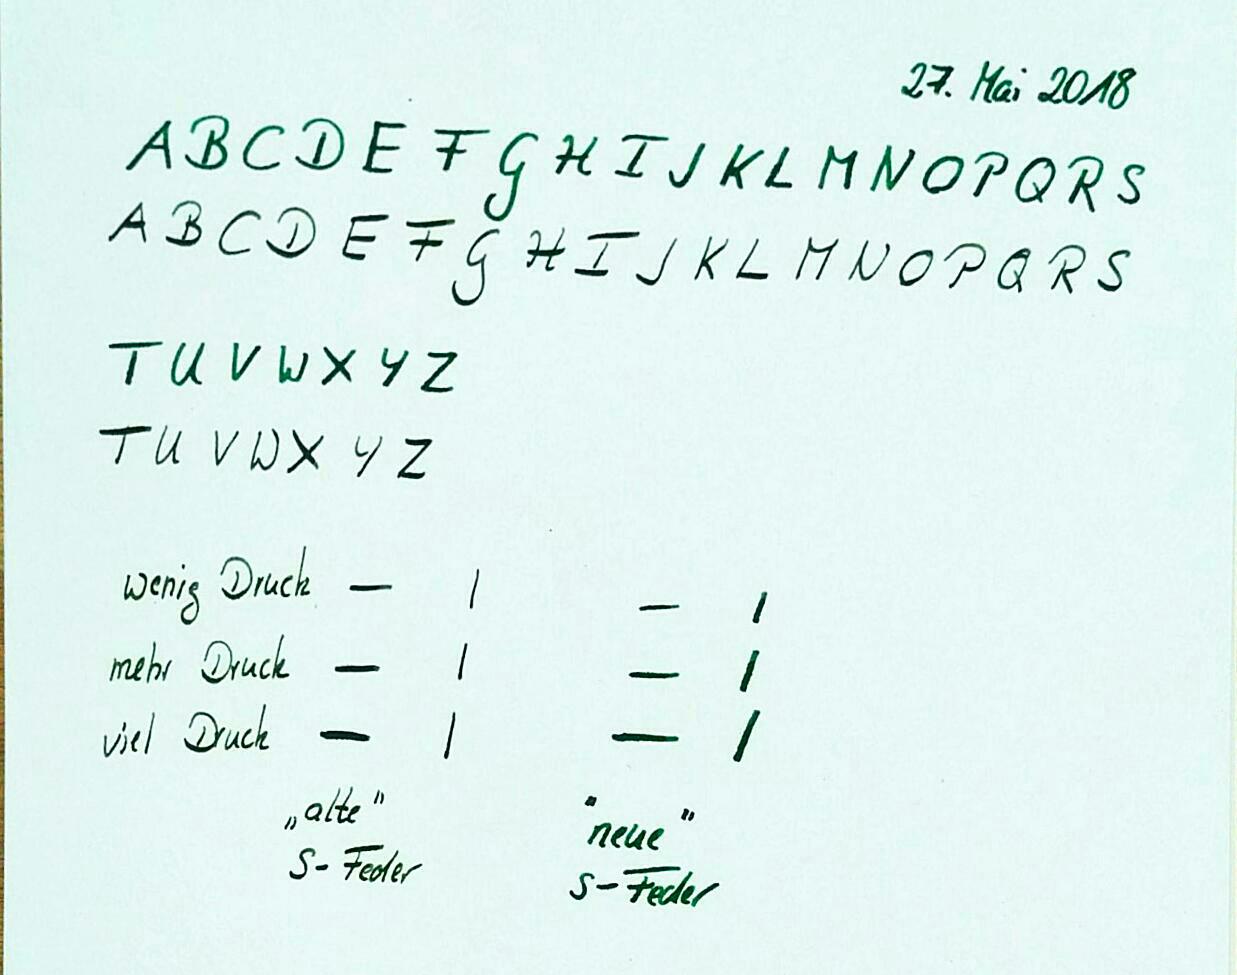 27. Mai 2018
A B C D E F G H I J K L M N O P Q R S
A B C D E F G H I J K L M N O P Q R S
T U V W X Y Z
T U V W X Y Z
wenig Druck — | — |
mehr Druck — | — |
viel Druck — | — |
„alte" "neue"
S-Feder S-Feder